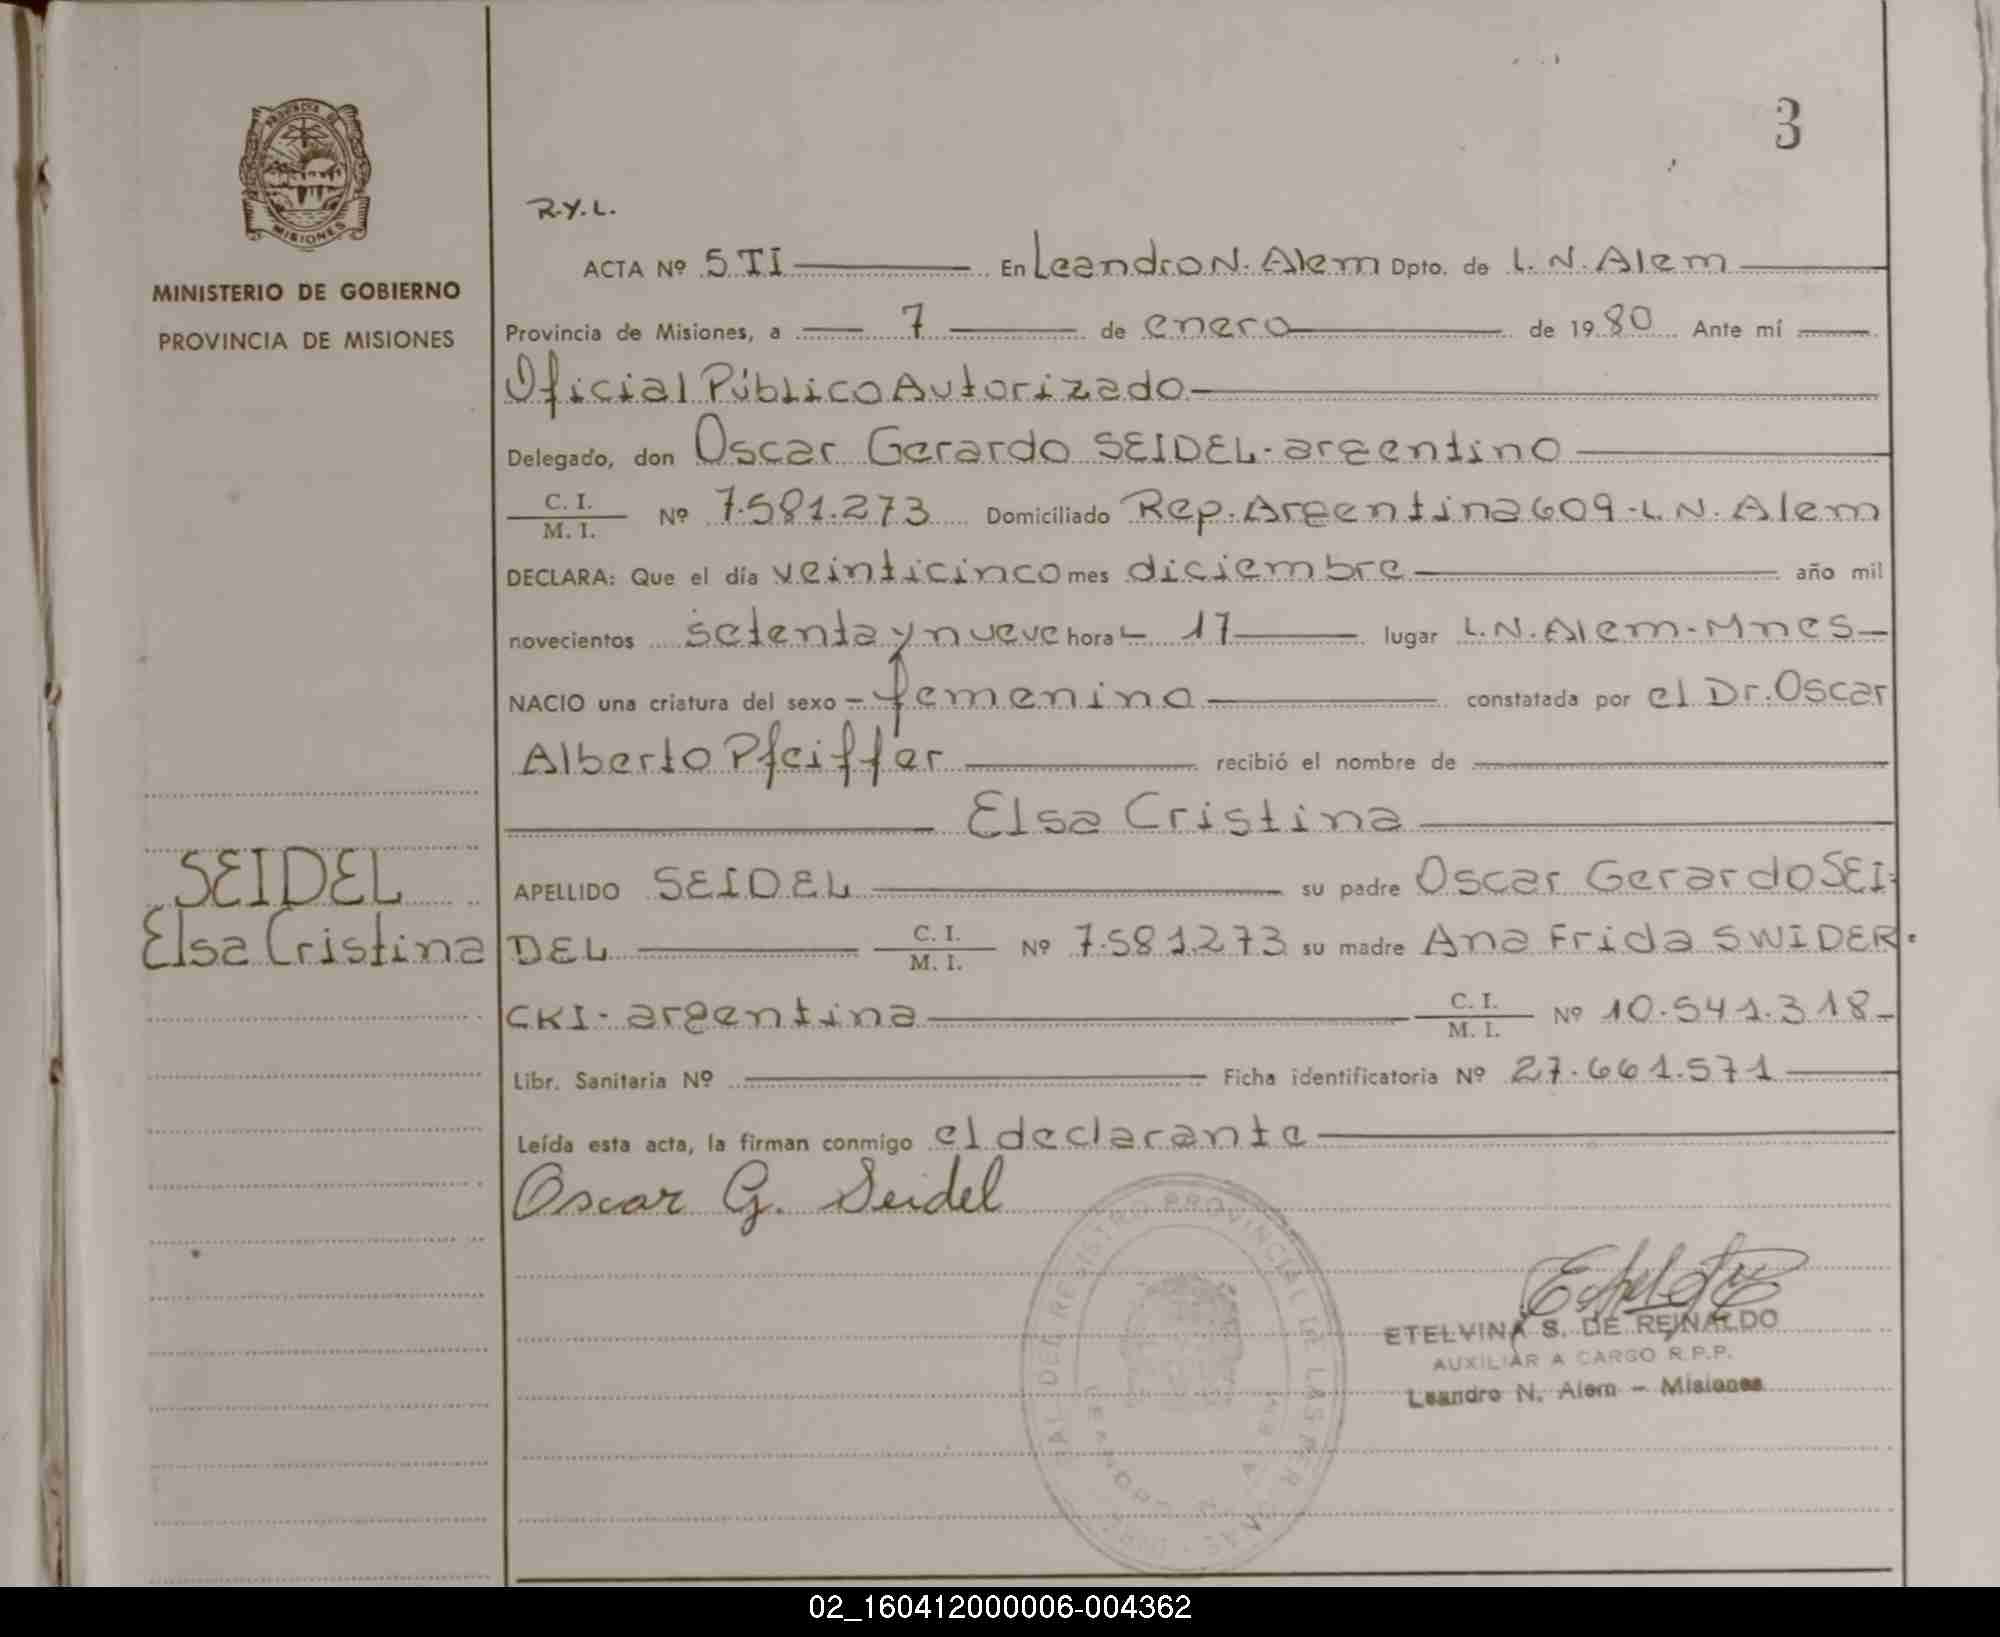 3
PROVINCIA DE
MISIONES
MINISTERIO DE GOBIERNO
PROVINCIA DE MISIONES
SEIDEL
Elsa Cristina
R.Y.L.
ACTA Nº 5 TI En Leandro N. Alem Dpto. de L. N. Alem
Provincia de Misiones, a 7 de enero de 19 80 Ante mí
Oficial Público Autorizado
Delegado, don Oscar Gerardo SEIDEL - argentino
C. I.
M. I. Nº 7.581.273 Domiciliado Rep. Argentina 609 - L. N. Alem
DECLARA: Que el día veinticinco mes diciembre año mil
novecientos setenta y nueve hora 17 lugar L. N. Alem - Mnes
NACIO una criatura del sexo femenino constatada por el Dr. Oscar
Alberto Pfeiffer recibió el nombre de
Elsa Cristina
APELLIDO SEIDEL su padre Oscar Gerardo SEI-
DEL C. I.
M. I. Nº 7.581.273 su madre Ana Frida SWIDER-
CKI - argentina C. I.
M. I. Nº 10.541.318
Libr. Sanitaria Nº Ficha identificatoria Nº 27.661.571
Leída esta acta, la firman conmigo el declarante
Oscar G. Seidel
REGISTRO PROVINCIAL DE LAS PERSONAS
LEANDRO N. ALEM
ETELVINA S. DE REINALDO
AUXILIAR A CARGO R.P.P.
Leandro N. Alem - Misiones
02_160412000006-004362